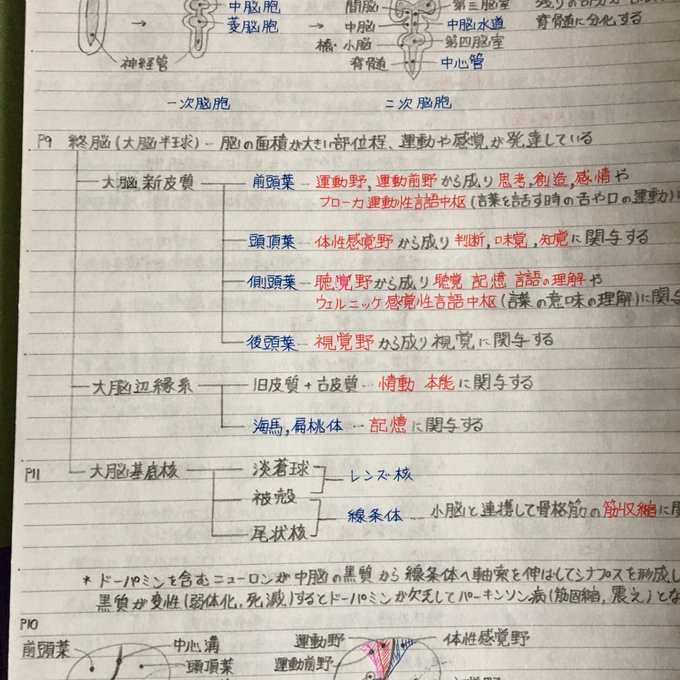 中脳胞
菱脳胞
神経管
一次脳胞
間脳
中脳
橋・小脳
脊髄
第三脳室
中脳水道
第四脳室
中心管
脊髄に分化する
二次脳胞
P9 終脳(大脳半球)－脳の面積が大きい部位程、運動や感覚が発達している
大脳新皮質
前頭葉－運動野,運動前野から成り思考,創造,感情や
ブローカ運動性言語中枢(言葉を話す時の舌や口の運動)
頭頂葉－体性感覚野から成り判断,味覚,知覚に関与する
側頭葉－聴覚野から成り聴覚 記憶 言語の理解や
ウェルニッケ感覚性言語中枢(言葉の意味の理解)に関与
後頭葉－視覚野から成り視覚に関与する
大脳辺縁系
旧皮質+古皮質－情動 本能に関与する
海馬,扁桃体－記憶に関与する
P11 大脳基底核
淡蒼球
被殻
尾状核
レンズ核
線条体－小脳と連携して骨格筋の筋収縮に関
*ドーパミンを含むニューロンが中脳の黒質から線条体へ軸索を伸ばしてシナプスを形成し
黒質が変性(弱体化,死滅)するとドーパミンが欠乏してパーキンソン病(筋固縮,震え)とな
P10
前頭葉
中心溝
頭頂葉
運動野
運動前野
体性感覚野